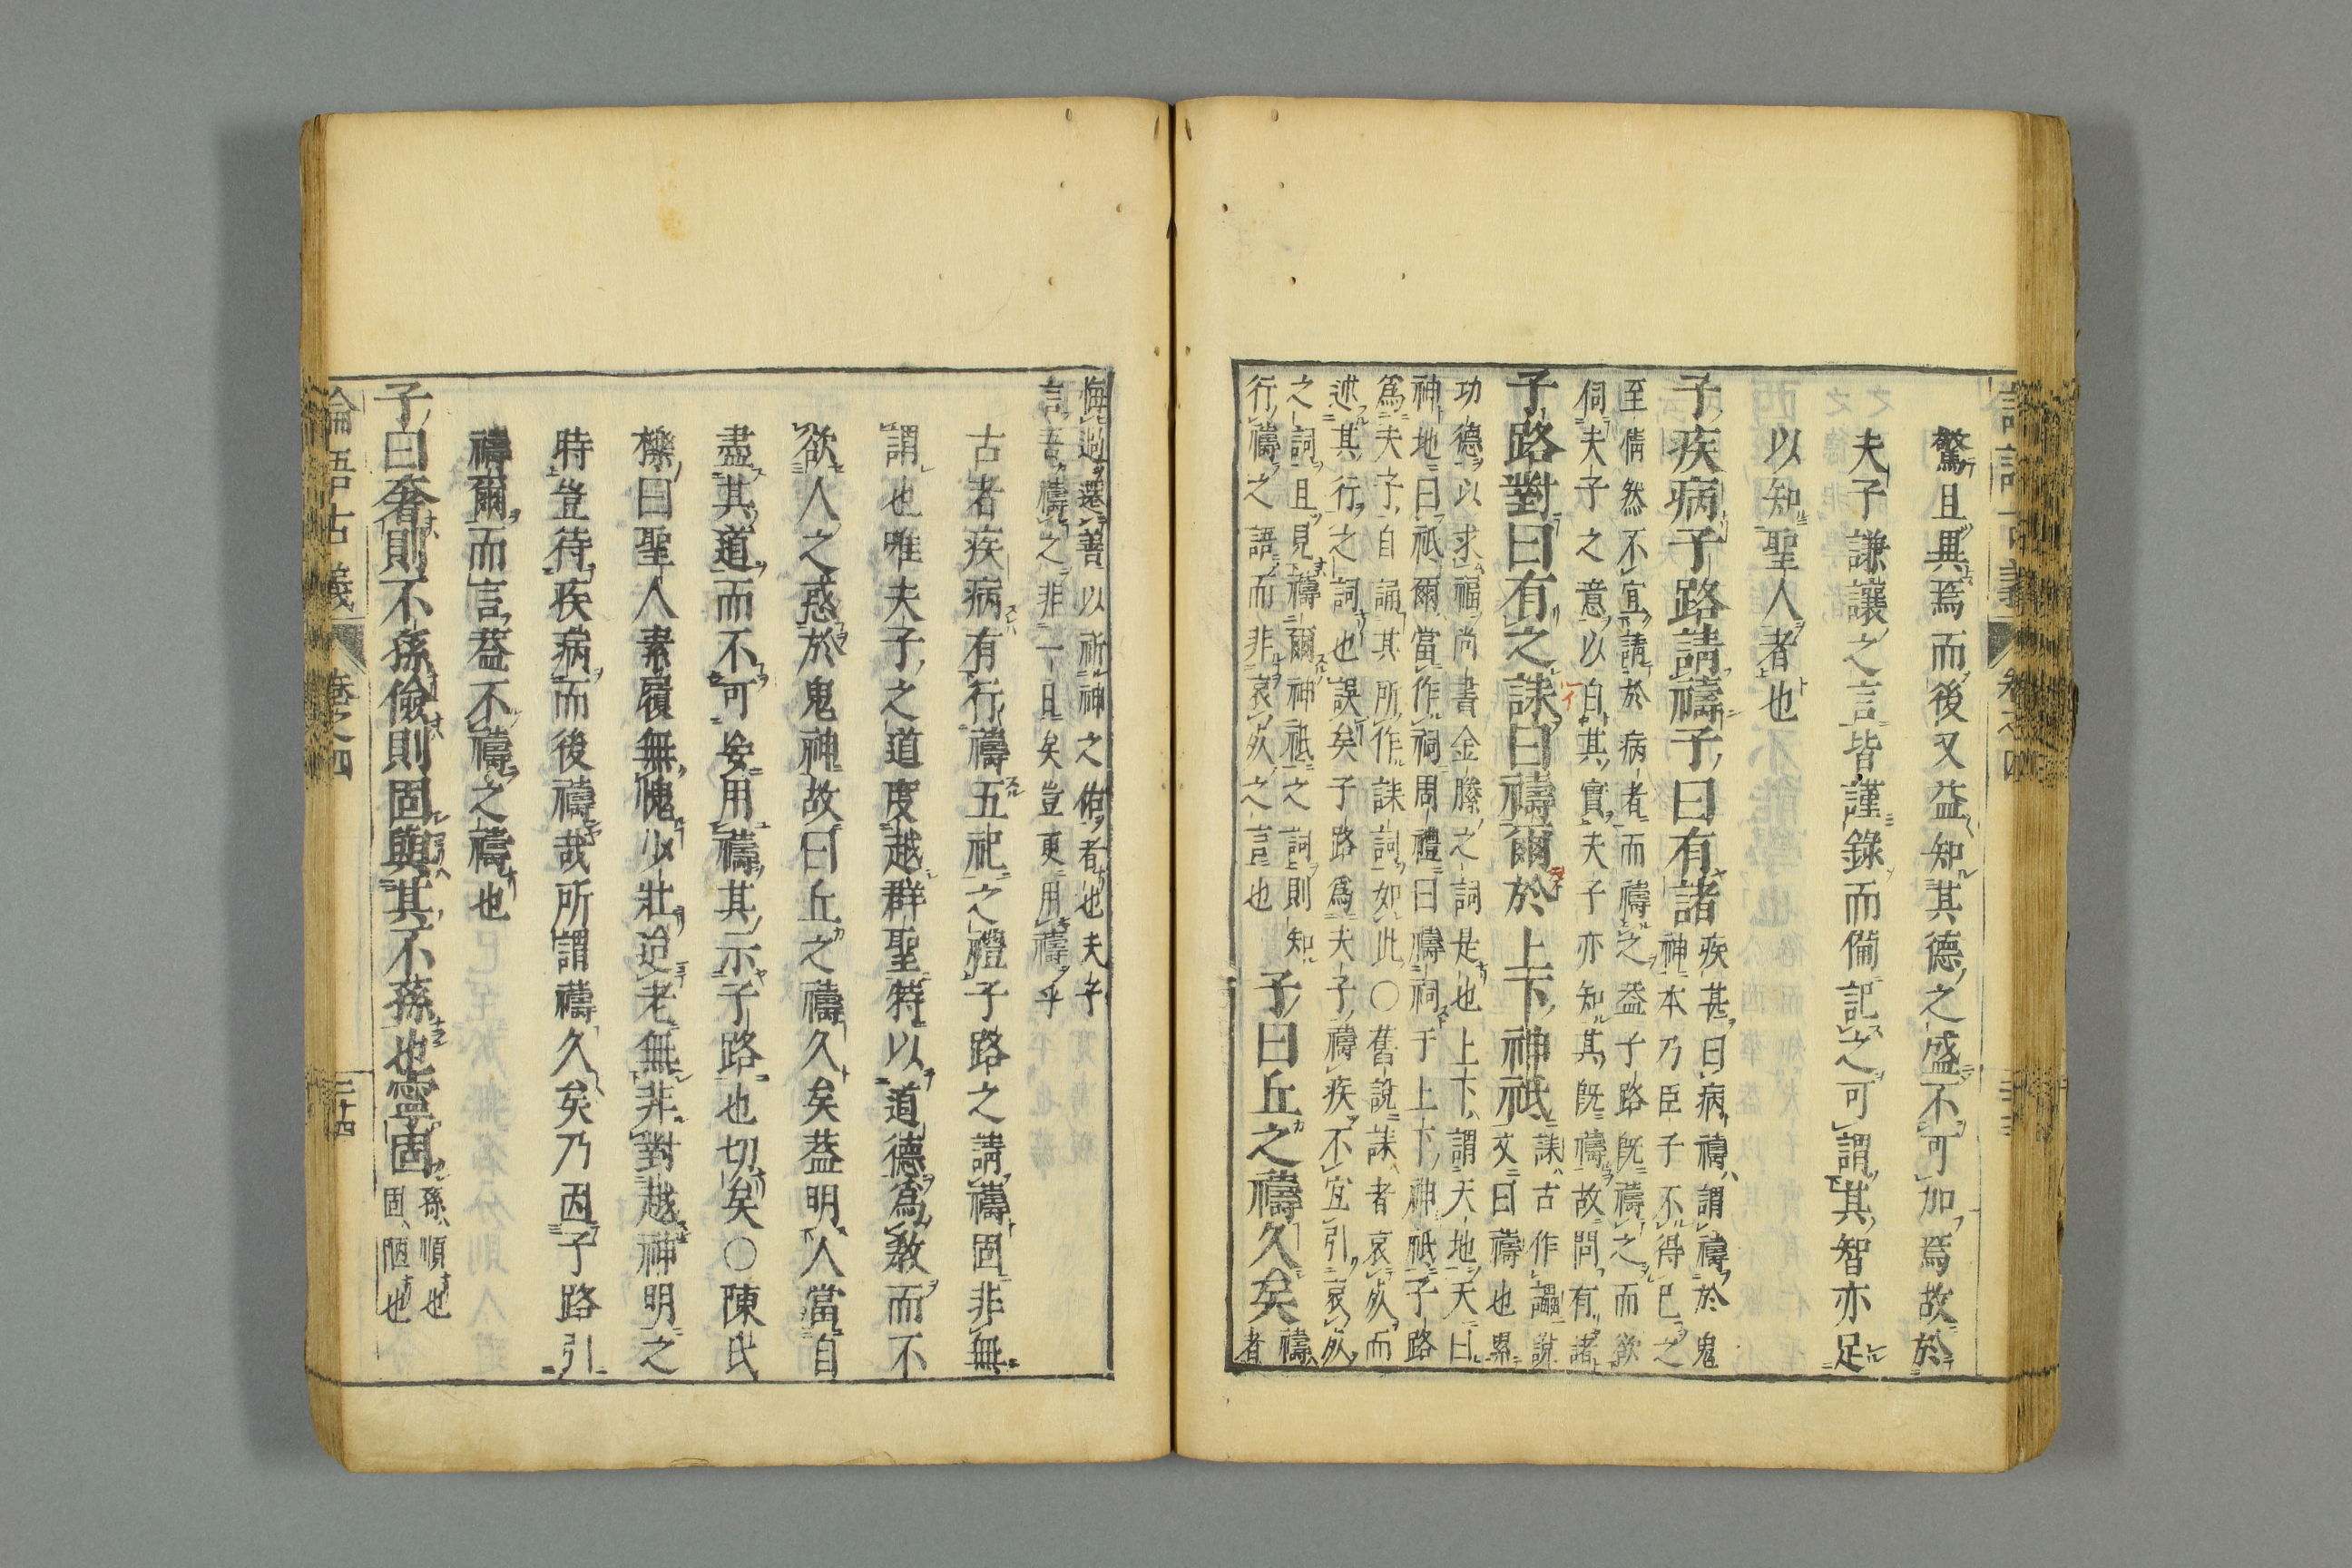 驚且異焉而後又益知其德之盛不可加焉故於
夫子謙讓之言皆謹錄而備記之可謂其智亦足
以知聖人者也
子疾病子路請禱子曰有諸
疾甚曰病禱謂禱於鬼
神本乃臣子不得已之
至情然不宜請於病者而禱之葢子路既禱之而欲
伺夫子之意以白其實夫子亦知其既禱故問有諸
子路對曰有之誄曰禱爾於上下神祇
誄古作讄說
文曰禱也累
功德以求福尚書金縢之詞是也上下謂天地天曰
神地曰祇爾當作祠周禮曰禱祠于上下神祇子路
爲夫子自誦其所作誄詞如此〇舊說誄者哀死而
述其行之詞也誤矣子路爲夫子禱疾不宜引哀死
之詞且見禱爾神祇之詞則知
行禱之語而非哀死之言也
子曰丘之禱久矣
禱
者
悔過遷善以祈神之佑者也夫子
言吾禱之非一日矣豈更用禱乎
古者疾病有行禱五祀之禮子路之請禱固非無
謂也唯夫子之道度越群聖特以道德爲敎而不
欲人之惑於鬼神故曰丘之禱久矣葢明人當自
盡其道而不可安用禱其示子路也切矣〇陳氏
櫟曰聖人素履無愧少壯迨老無非對越神明之
時豈待疾病而後禱哉所謂禱久矣乃因子路引
禱爾而言葢不禱之禱也
子曰奢則不孫儉則固與其不孫也寧固
孫順也
固陋也
論語古義
卷之四
二十四